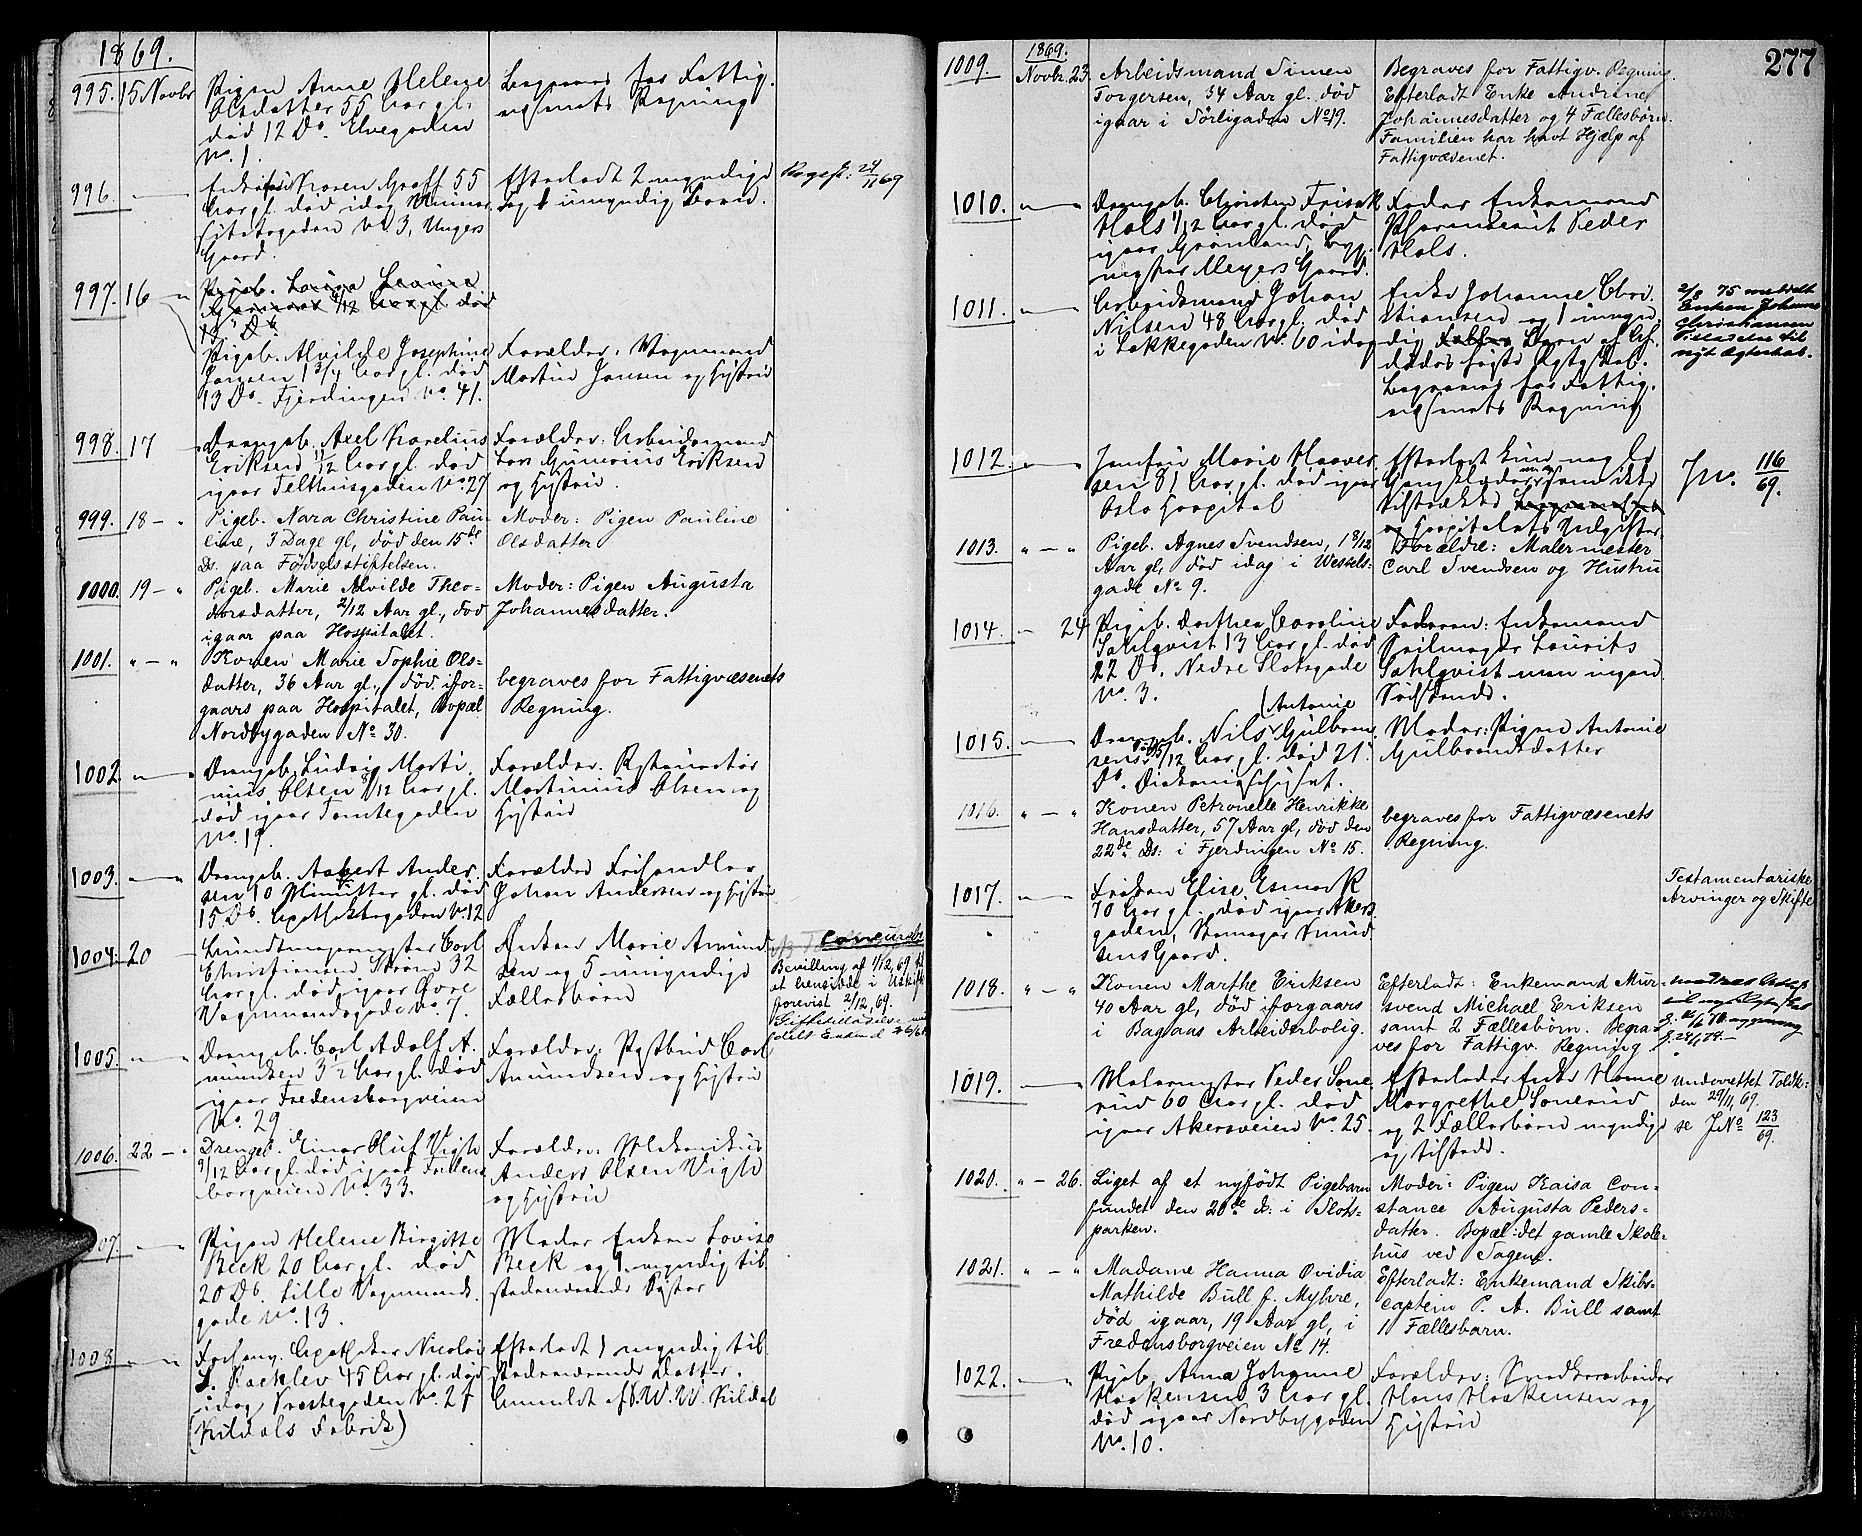 1869.
995. 15 Novbr Pigen Anne Helene
Olsdatter 55 Aar gl.
død 12 Ds. Elvegaden
No. 1.
Begraves for Fattig-
væsenets Regning
996. Enkefru Karen Graff 55
Aar gl. død idag
gaden No 3, Ungers
Gaard.
Efterladt 2 myndige
og 1 umyndig Barn.
Regist: 24/11 69
997. 16 Pigeb.
1/12 Aar gl. død
15 Ds.
Pigeb. Alvilde Josephine
Jansen 1 3/4 Aar gl. død
13 Ds. Fjerdingen No. 41.
Forældre: Vognmand
Martin Jansen og Hustru
998. 17 Drengeb. Axel Karelius
Eriksen 11/12 Aar gl. død
igaar Telthusgaden No. 27
Forældre: Arbeidsmand
Lars Gunerius Eriksen
og Hustru.
999. 18 - " Pigeb. Nara Christine Pau-
line, 3 Dage gl, død den 15de
Ds. paa Fødselsstiftelsen.
Moder: Pigen Pauline
Olsdatter
1000. 19 - " Pigeb. Marie Alvilde Theo-
dorsdatter, 2/12 Aar gl., død
igaar paa Hospitalet.
Moder: Pigen Augusta
Johannesdatter.
1001. " - " Konen Marie Sophie Ols-
datter, 36 Aar gl., død ifor-
gaars paa Hospitalet, Bopæl
Nordbygaden No 30.
begraves for Fattigvæsenets
Regning.
1002. Drengeb. Ludvig Marti-
nius Olsen 8/12 Aar gl.
død igaar Tomtegaden
No. 19.
Forældre:
Martinius Olsen og
Hustru
1003. Drengeb. Aabert Ander-
sen 10 Minutter gl. død
15 Ds. Apothekergaden No. 12
Forældre
Johan Andersen og Hustru
1004. 20 Bundtmagermester Carl
Christiansen Strøm 32
Aar gl. død igaar Øvre
Vognmandsgade No. 7.
Enken Marie Amund-
sen og 5 umyndige
Fællesbørn
Bevilling af 1/12, 69 til
at hensidde i Uskift
forevist 2/12, 69.
1005. Drengeb. Carl Adolf A-
mundsen 3 1/2 Aar gl. død
igaar Fredensborgveien
No. 29
Forældre: Postbud Carl
Amundsen og Hustru
1006. 22 - Drengeb. Einar Oluf Vigh
9/12 Aar gl. død igaar Fredens-
borgveien No. 33.
Forældre: Mekanikus
Anders Olsen Vigh
og Hustru
1007 Pigen Helene Birgitte
Beck 20 Aar gl. død
20 Ds. Lille Vognmands-
gade No. 13.
Moder Enken Lovise
Beck og 1 myndig til-
stedeværende Søster
1008. Forhenv. Apotheker Nicolai
S. Kaeklev 45 Aar gl. død
idag Vestegaden No. 27
(Kildals Fabrik)
Efterladt 1 myndig til-
stedeværende Datter.
Anmeldt af P. W. W. Kildal
277
1869.
1009. Novbr. 23. Arbeidsmand Simen
Torgersen, 34 Aar gl. død
igaar i Tørligaden No 19.
Begraves for Fattigv. Regning.
Efterladt Enke Andrine
Johannesdatter og 4 Fællesbørn.
Familien har havt Hjælp af
Fattigvæsenet.
1010. Drengeb. Christen Frisak
Hals 1/12 Aar gl. død
igaar Grønland, Byg-
mester Meyers Gaard.
Fader Enkemand
Pharmaceut Peder
Hals.
1011. Arbeidsmand Johan
Nilsen 48 Aar gl. død
i Lakkegaden No. 60 idag
Enke Johanne Chri-
stiansen og 1 umyn-
dig Barn af Af-
dødes første Ægteskab.
Begraves for Fattig-
væsenets Regning
2/8 75 meddelt
Enken Johanne
Christiansen
Tilladelse til
nyt Ægteskab.
1012. Jomfru Marie Haaver-
sen 81 Aar gl. død igaar
Oslo Hospital
Efterladt kun nogle
Gangklæder som ikke
tilstrække
og Hospitalets Udgifter
Jn. 116/69.
1013. " - " Pigeb. Agnes Svendsen, 1 8/12
Aar gl, død idag i Wessels-
gade No 9.
Forældre: Malermester
Carl Svendsen og Hustru
1014. - 24 Pigeb. Dorthea Caroline
Sahlqvist 13 Aar gl. død
22 Ds. Nedre Slotsgade
No. 3.
Faderen: Enkemand
Seilmager Laurits
Sahlqvist men ingen
Formue.
1015. Drengeb. Nils (Antonie Gulbrand-
sens 5/12 Aar gl. død 21
Ds. Diakonissehuset.
Moder: Pigen Antonie
Gulbrandsdatter
1016. " - " Konen Petronelle Henrikke
Hansdatter, 57 Aar gl, død den
22de Ds: i Fjerdingen No 15.
begraves for Fattigvæsenets
Regning.
1017. Frøken Elise Esmark
70 Aar gl. død igaar Akers-
gaden, Skomager Knud-
sens Gaard.
Testamentariske
Arvinger og Skifte
1018. " - " Konen Marthe Eriksen
40 Aar gl, død iforgaars
i Bagaas Arbeiderbolig.
Efterladt: Enkemand Mur-
svend Michael Eriksen
samt 2 Fællesbørn. Begra-
ves for Fattigv. Regning.
1019. Malermester Peder Sone-
rud 60 Aar gl. død
igaar Akersveien No. 25.
Efterlader Enke Hanne
Margrethe Sonerud
og 2 Fællesbørn myndige
og tilstede.
Underrettet Toldk:
den 29/11, 69.
se JNo 123/69.
1020. " - 26. Liget af et nyfødt Pigebarn
fundet den 20de ds: i Slots-
parken.
Moder: Pigen Kaisa Con-
stance Augusta Peders-
datter. Bopæl: det gamle Skole-
hus ved Sagene.
1021. " - " Madame Hanna Ovidia
Mathilde Bull f. Myhre,
død igaar, 19 Aar gl, i
Fredensborgveien No 14.
Efterladt: Enkemand Skibs-
captein P. A. Bull samt
1 Fællesbarn.
1022. Pigeb. Anna Johanne
Haakensen 3 Aar gl.
død igaar Nordbygaden
No. 10.
Forældre: Snedkerarbeider
Hans Haakensen og
Hustru